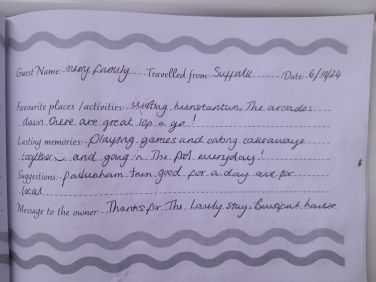 Guest Name: nerry family Travelled from: Suffolk Date: 6/10/24
Favourite places / activities:- visiting hunstanton. The arcades
down there are great. Hop a go!
Lasting memories:- Playing games and eating takeaways
together and going in The Pool everyday!
Suggestions:- pakenham Farm good for a day out for
local
Message to the owner:- Thanks for The Lovely stay. Beautiful house